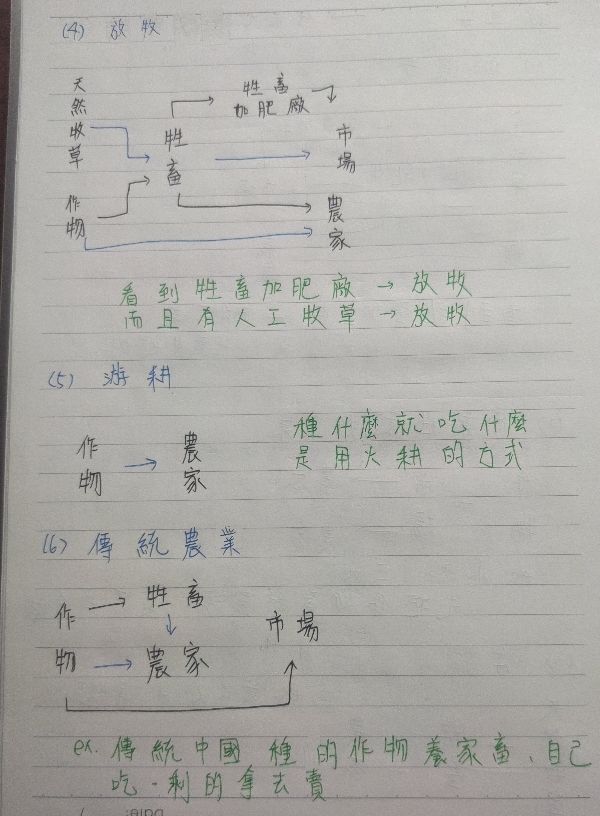 (4) 放牧
天然牧草
作物
牲畜
牲畜
加肥廠
市場
農家
看到牲畜加肥廠→放牧
而且有人工牧草→放牧
(5) 游耕
作物 → 農家
種什麼就吃什麼
是用火耕的方式
(6) 傳統農業
作物
牲畜
農家
市場
ex. 傳統中國 種的作物養家畜、自己
吃、剩的拿去賣